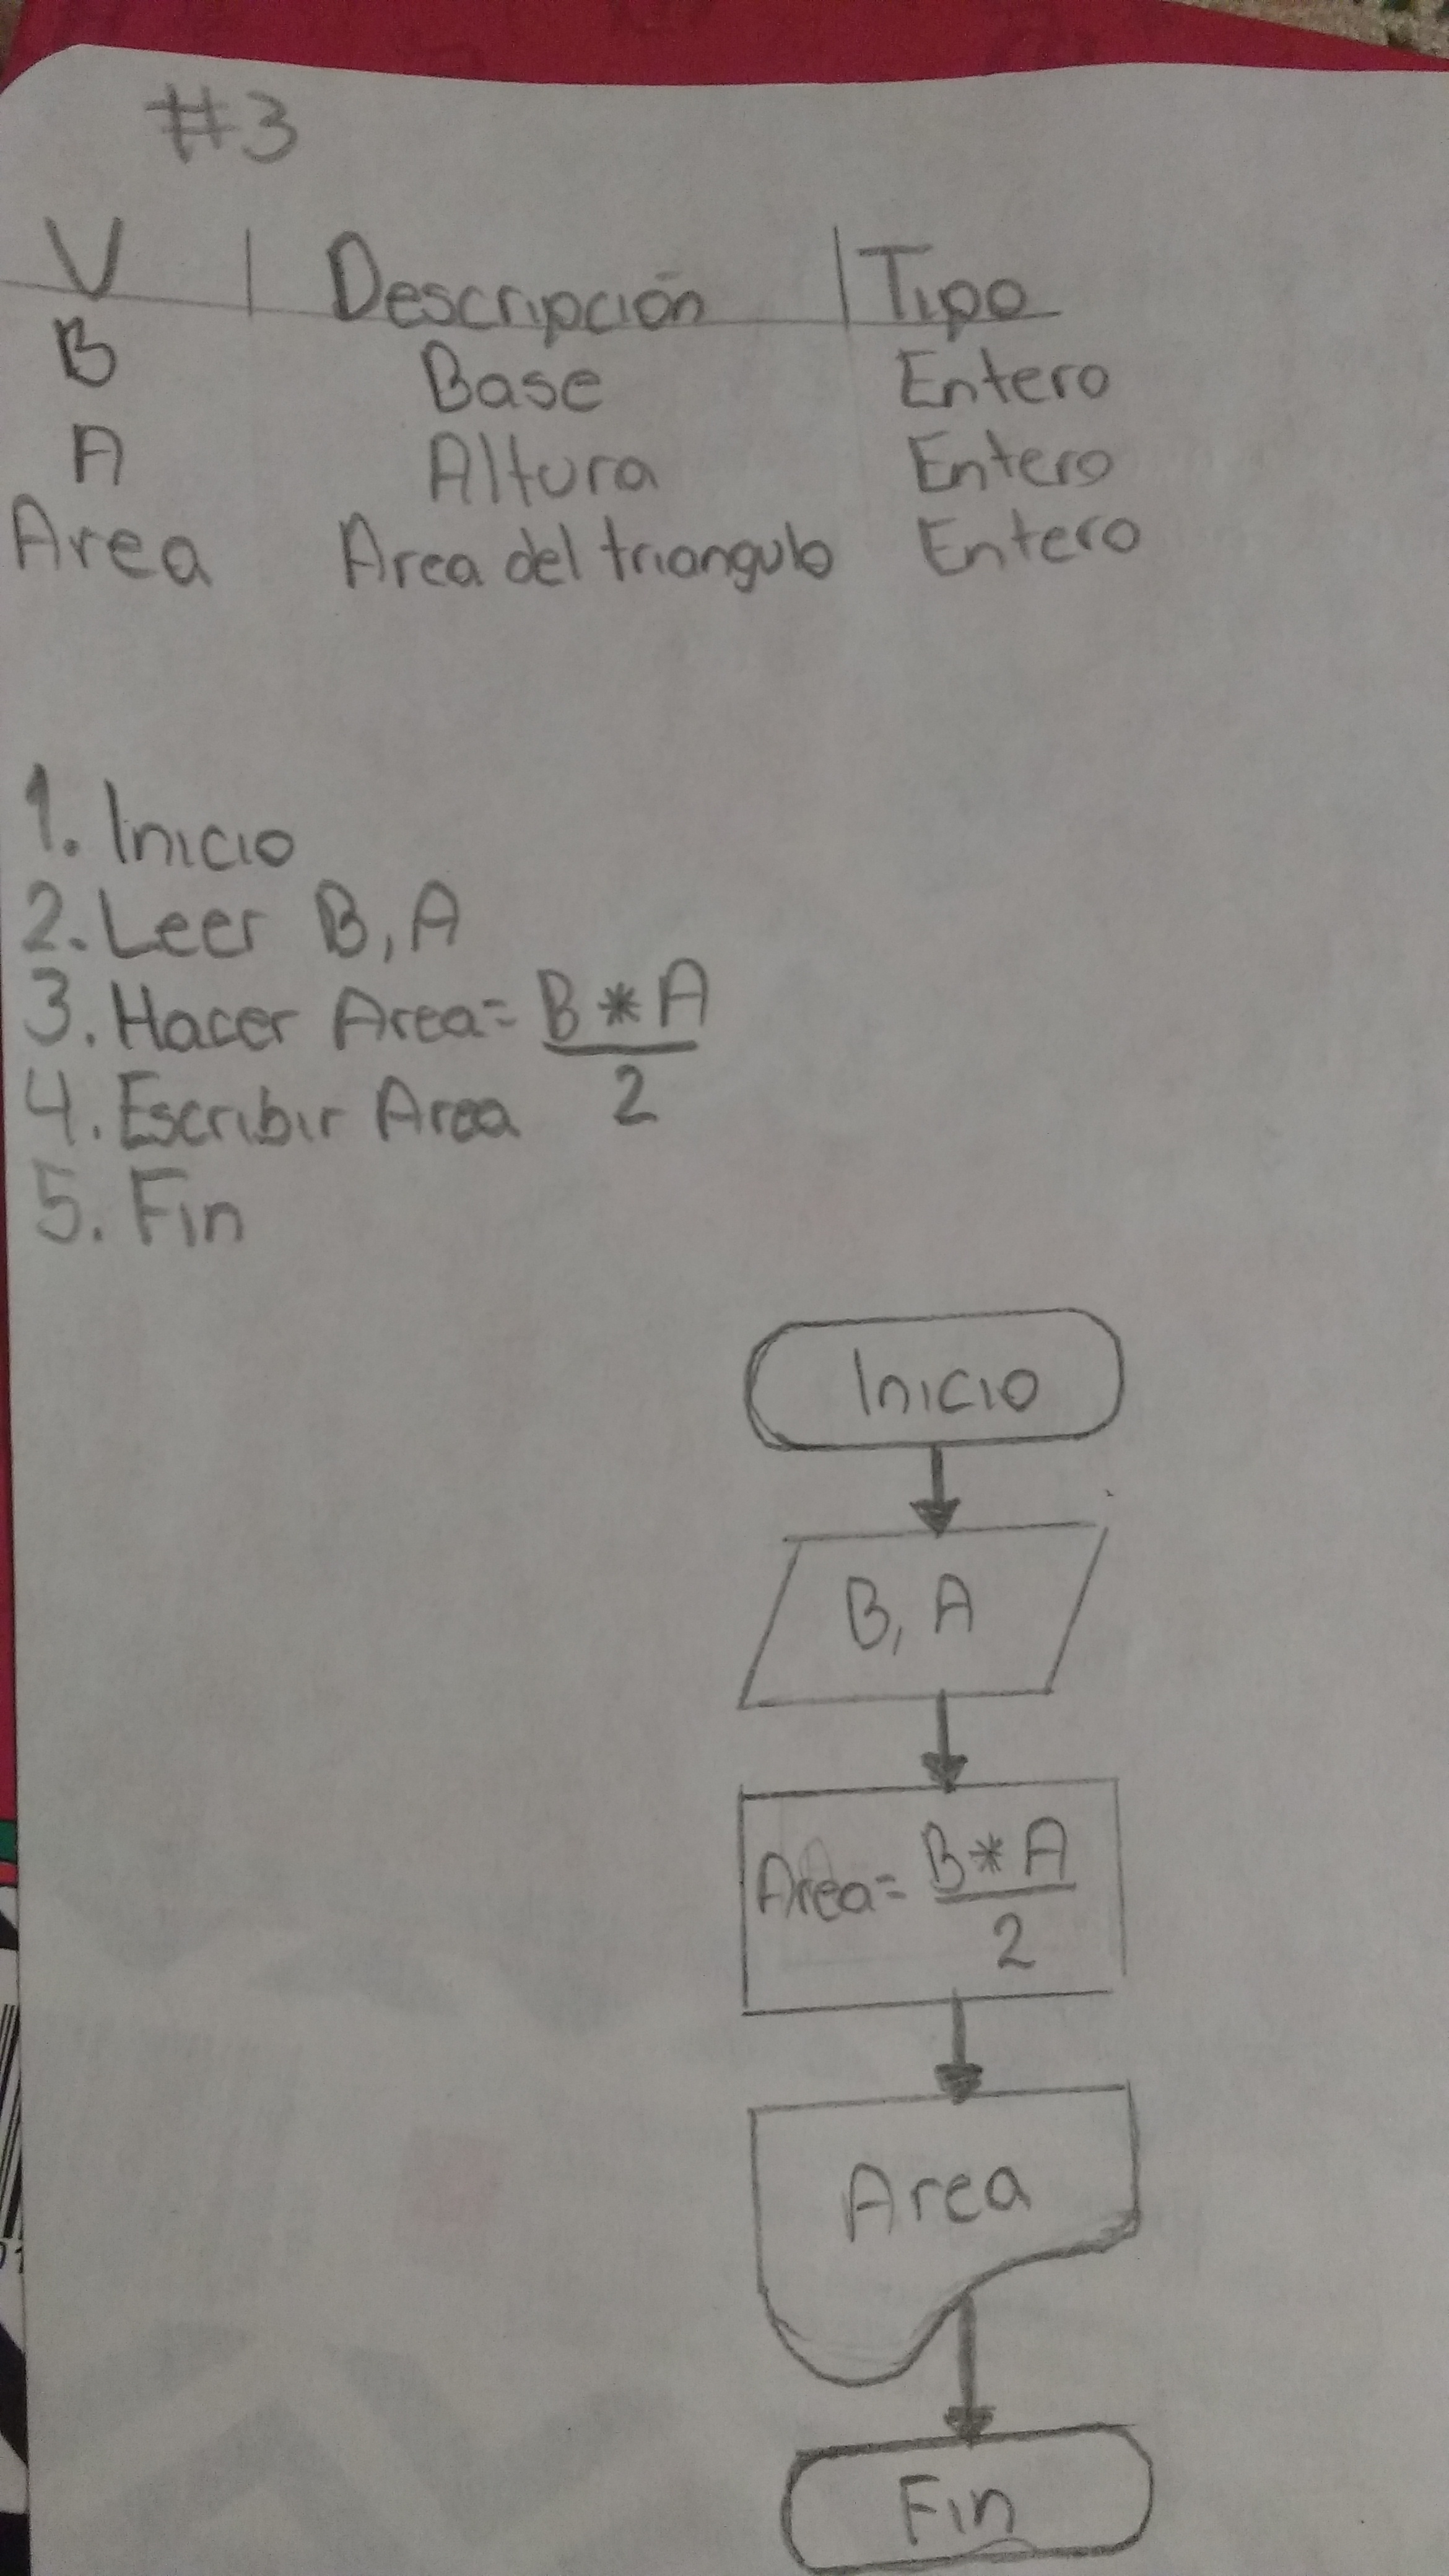 #3
V | Descripción | Tipo
B Base Entero
A Altura Entero
Area Area del triangulo Entero
1. Inicio
2. Leer B, A
3. Hacer Area= B * A
2
4. Escribir Area
5. Fin
Inicio
B, A
Area= B * A
2
Area
Fin